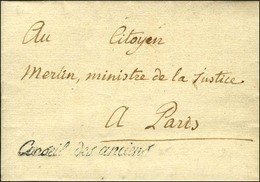 Au Citoyen
Merlen, ministre de la Justice
A Paris
Conseil des anciens